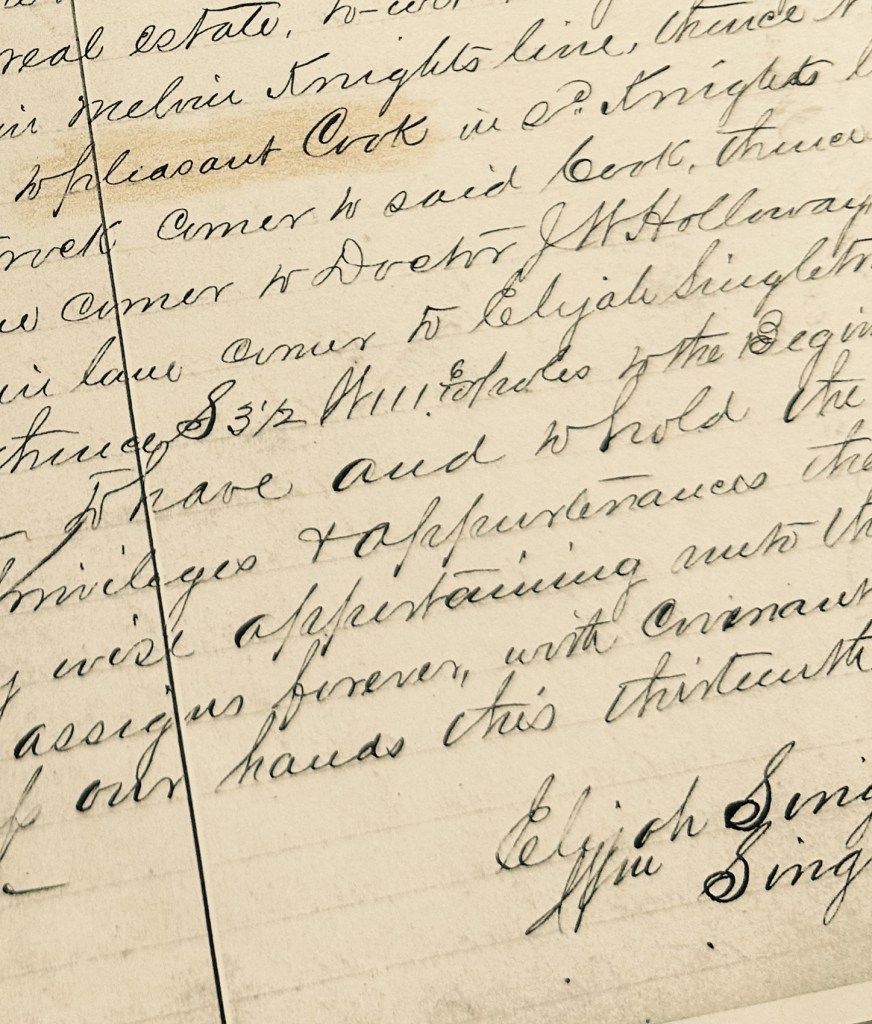 real estate, to-wit
in Melvin Knights line, thence N
to pleasant Cook in sd. Knights l
rock corner to said Cook, thence
corner to Doctor J W Holloway
in lane corner to Elijah Singleton
thence S 3 1/2 W 111 poles to the Begin
To have and to hold the
privileges & appurtenances the
y wise appertaining unto th
assigns forever, with Covenant
f our hands this thirteenth
Elijah Sing
Wm Sing